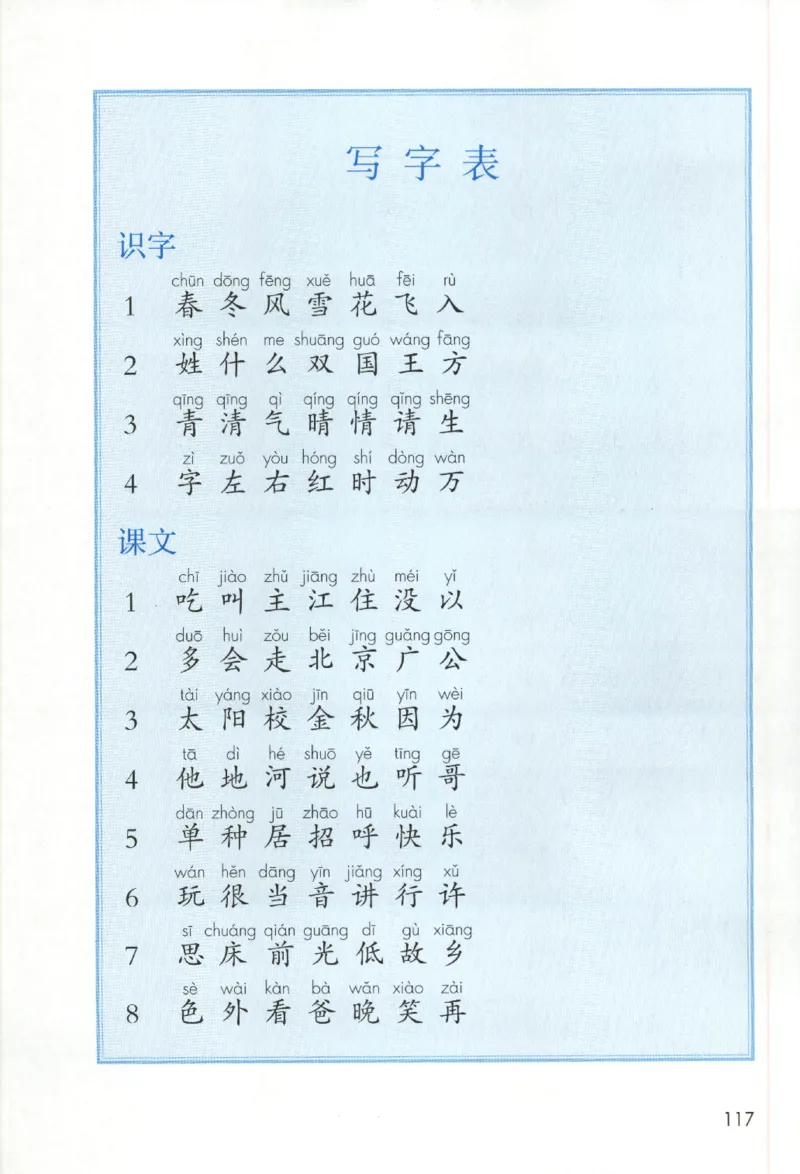 写字表
识字
chūn dōng fēng xuě huā fēi rù
1 春 冬 风 雪 花 飞 入
xìng shén me shuāng guó wáng fāng
2 姓 什 么 双 国 王 方
qīng qīng qì qíng qíng qǐng shēng
3 青 清 气 晴 情 请 生
zì zuǒ yòu hóng shí dòng wàn
4 字 左 右 红 时 动 万
课文
chī jiào zhǔ jiāng zhù méi yǐ
1 吃 叫 主 江 住 没 以
duō huì zǒu běi jīng guǎng gōng
2 多 会 走 北 京 广 公
tài yáng xiào jīn qiū yīn wèi
3 太 阳 校 金 秋 因 为
tā dì hé shuō yě tīng gē
4 他 地 河 说 也 听 哥
dān zhòng jū zhāo hū kuài lè
5 单 种 居 招 呼 快 乐
wán hěn dāng yīn jiǎng xíng xǔ
6 玩 很 当 音 讲 行 许
sī chuáng qián guāng dī gù xiāng
7 思 床 前 光 低 故 乡
sè wài kàn bà wǎn xiào zài
8 色 外 看 爸 晚 笑 再
117